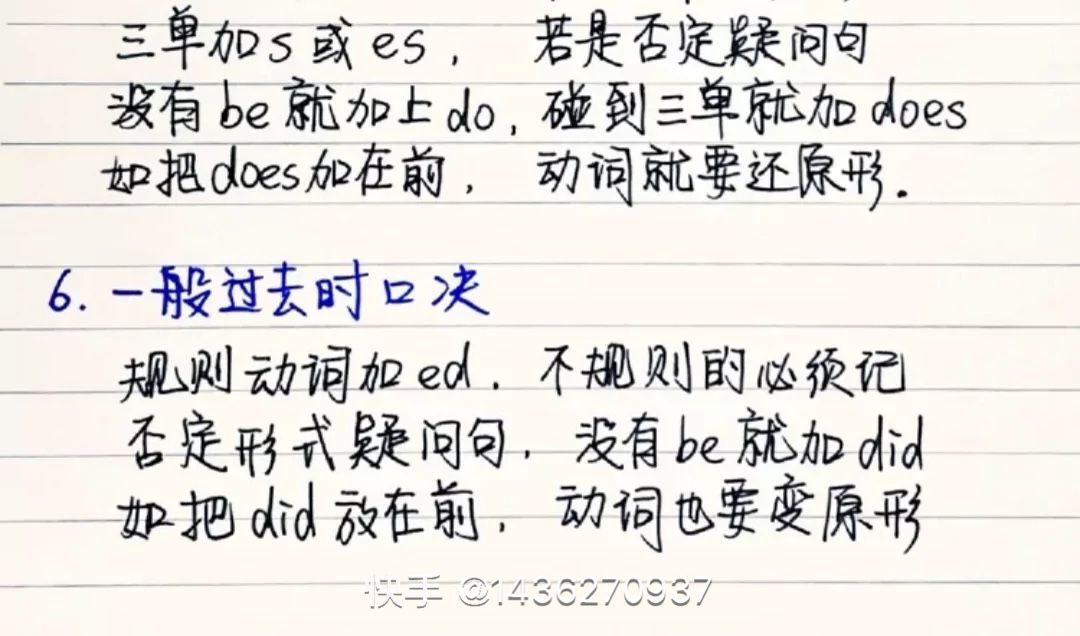 三单加s或es, 若是否定疑问句
没有be就加上do, 碰到三单就加does
如把does加在前, 动词就要还原形.
6. 一般过去时口决
规则动词加ed. 不规则的必须记
否定形式疑问句, 没有be就加did
如把did放在前, 动词也要变原形
快手 @1436270937